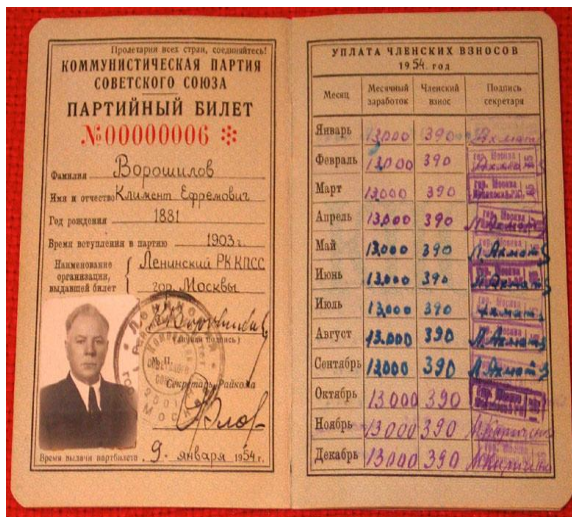 Пролетарии всех стран, соединяйтесь!
КОММУНИСТИЧЕСКАЯ ПАРТИЯ
СОВЕТСКОГО СОЮЗА
ПАРТИЙНЫЙ БИЛЕТ
№00000006
Фамилия Ворошилов
Имя и отчество Климент Ефремович
Год рождения 1881
Время вступления в партию 1903 г.
Наименование организации, выдавшей билет
Ленинский РК КПСС
гор. Москвы
(Личная подпись)
М. П.
Секретарь Райкома
Время выдачи партбилета 9 января 1954 г.
УПЛАТА ЧЛЕНСКИХ ВЗНОСОВ
1954 год
Месяц Месячный заработок Членский взнос Подпись секретаря
Январь 13,000 390
Февраль 13,000 390
Март 13,000 390
Апрель 13,000 390
Май 13,000 390
Июнь 13,000 390
Июль 13,000 390
Август 13,000 390
Сентябрь 13,000 390
Октябрь 13,000 390
Ноябрь 13,000 390
Декабрь 13,000 390